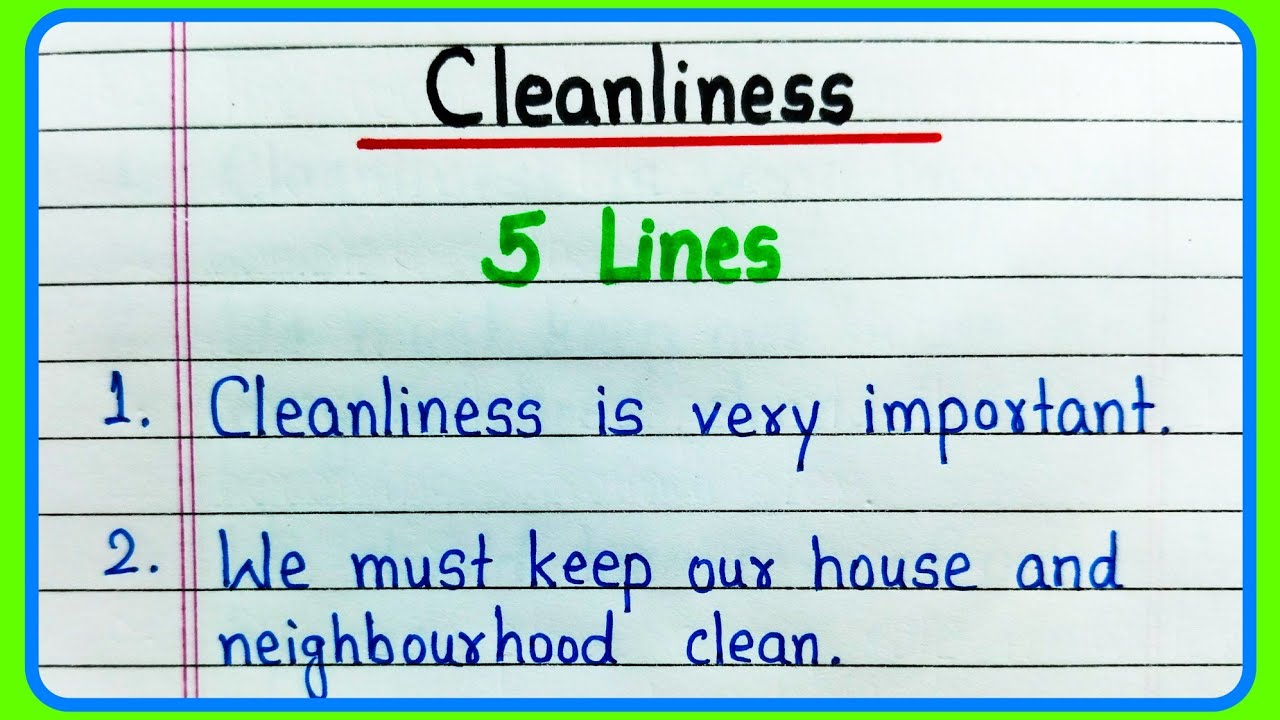 Cleanliness
5 Lines
1. Cleanliness is very important.
2. We must keep our house and
neighbourhood clean.